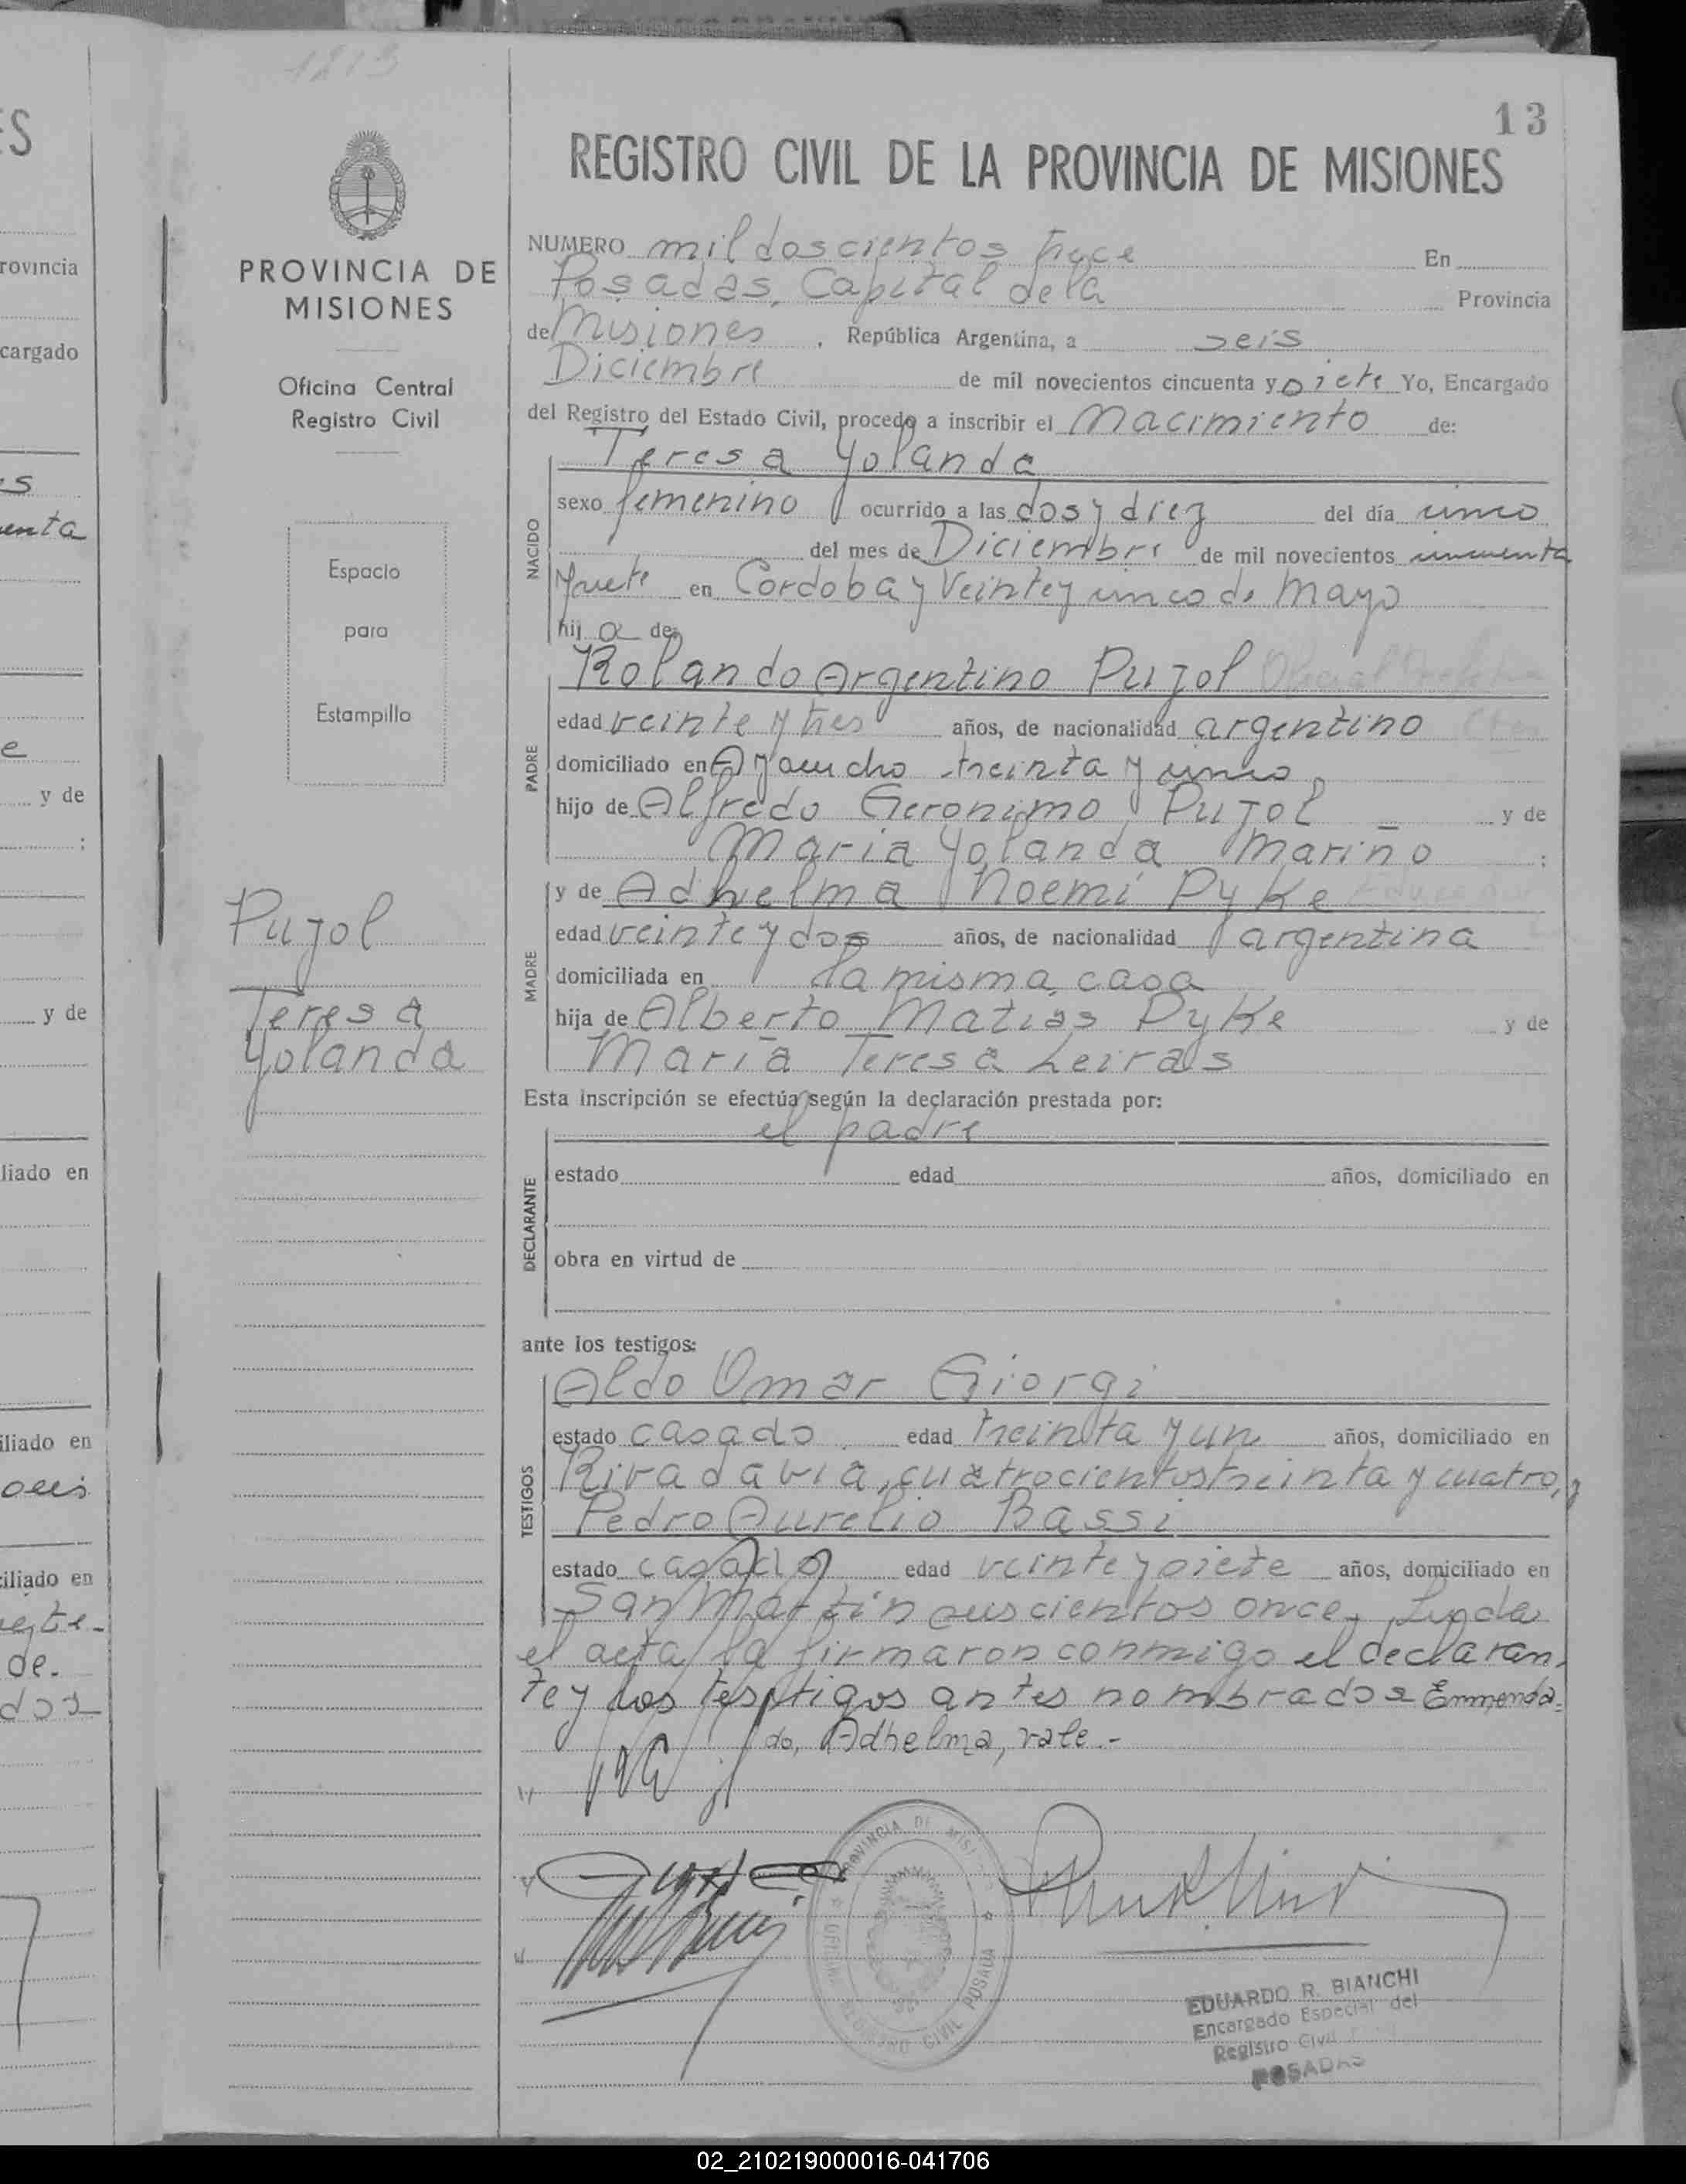 1213
13
REGISTRO CIVIL DE LA PROVINCIA DE MISIONES
PROVINCIA DE
MISIONES
Oficina Central
Registro Civil
Espacio
para
Estampilla
Pujol
Teresa
Yolanda
NUMERO mil doscientos trece En
Posadas, Capital de la Provincia
de Misiones, República Argentina, a seis
Diciembre de mil novecientos cincuenta y siete Yo, Encargado
del Registro del Estado Civil, procedo a inscribir el Nacimiento de:
NACIDO
Teresa Yolanda
sexo femenino ocurrido a las dos y diez del día cinco
del mes de Diciembre de mil novecientos cincuenta
y siete en Cordoba y Veinte y cinco de Mayo
hija de:
PADRE
Rolando Argentino Pujol Oficial
edad veinte y tres años, de nacionalidad argentino
domiciliado en Ayacucho treinta y cinco
hijo de Alfredo Geronimo Pujol y de
Maria Yolanda Marino ;
MADRE
y de Adhelma Noemi Pyke
edad veinte y dos años, de nacionalidad argentina
domiciliada en la misma casa
hija de Alberto Matias Pyke y de
Maria Teresa Leiras
Esta inscripción se efectúa según la declaración prestada por:
el padre
DECLARANTE
estado edad años, domiciliado en
obra en virtud de
ante los testigos:
TESTIGOS
Aldo Omar Giorgi
estado casado edad treinta y un años, domiciliado en
Rivadavia, cuatrocientos treinta y cuatro, y
Pedro Aurelio Bassi
estado casado edad veinte y siete años, domiciliado en
San Martin seiscientos once. Leida
el acta la firmaron conmigo el declaran-
te y los testigos antes nombrados Enmenda-
do, Adhelma, vale.-
PROVINCIA DE MISI
REGISTRO CIVIL POSADA
EDUARDO R. BIANCHI
Encargado Especial del
Registro Civil
POSADAS
ES
rovincia
cargado
enta
e
y de
y de
liado en
iliado en
iliado en
de.
dos
02_210219000016-041706